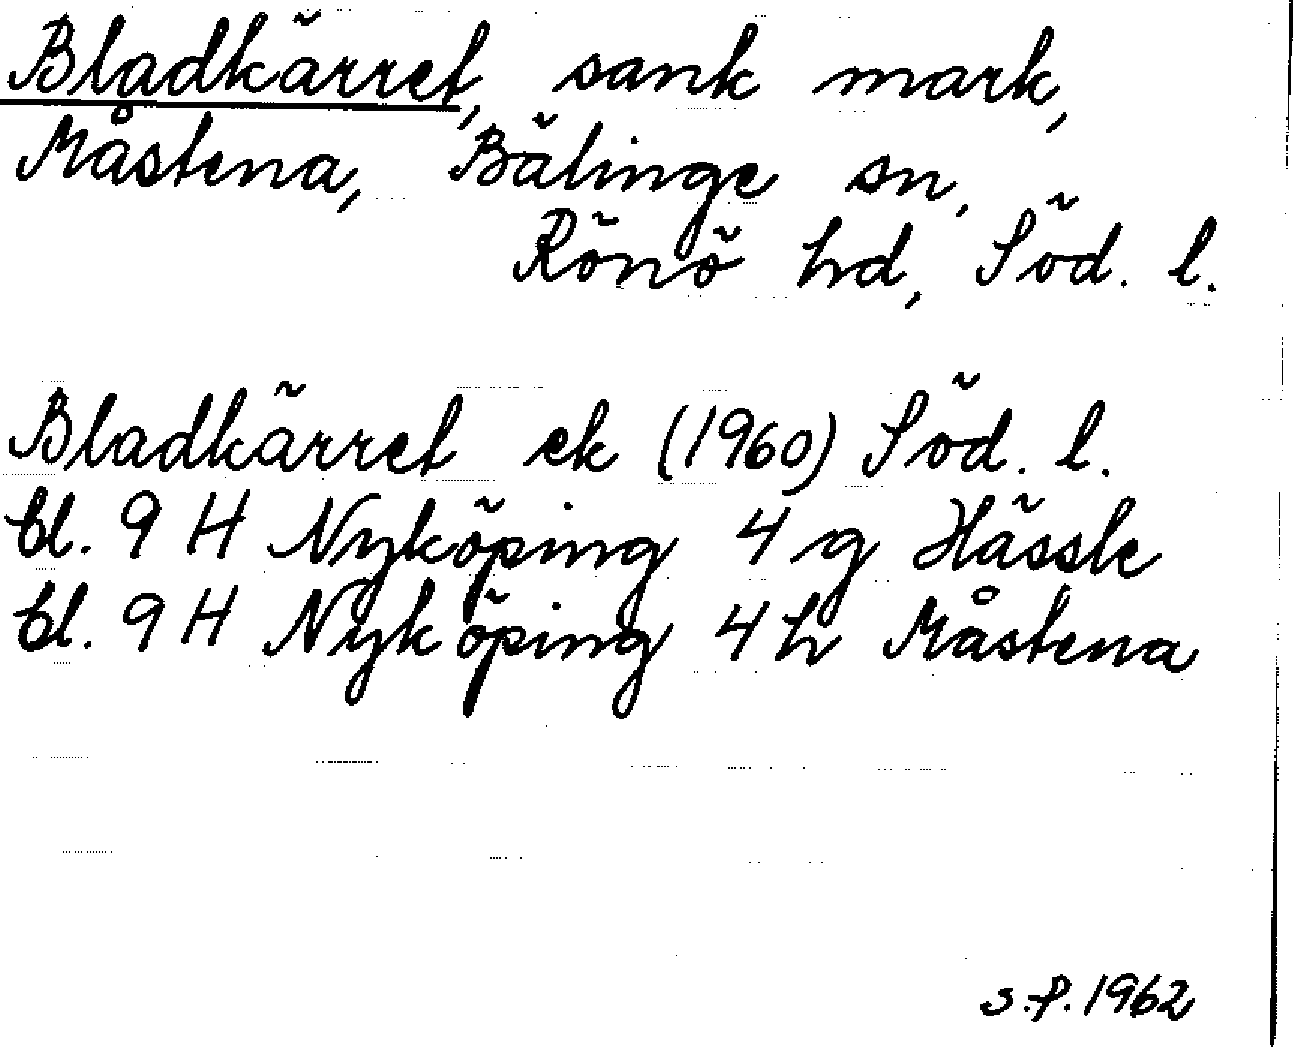 Bladkärret, sank mark,
Måstena, Bälinge sn,
Rönö hd, Söd. l.
Bladkärret ek (1960) Söd. l.
bl. 9 H Nyköping 4 g Hässle
bl. 9 H Nyköping 4 h Måstena
S.P. 1962